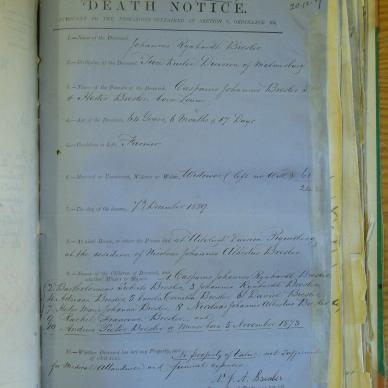 DEATH NOTICE.
PURSUANT TO THE PROVISIONS CONTAINED IN SECTION ORDINANCE
1.—Name of the Deceased, Johannes Rynhardt Breslер
2.—Birthplace of the Deceased, Division of Malmesbury
3.—Names of the Parents of the Deceased, Casparus Johannes Bresler
& Hester Bresler born Louw
4.—Age of the Deceased, 64 Years, 6 Months & 17 Days
5.—Condition in Life, Farmer
6.—Married or Unmarried, Widower or Widow, Widower (left no Will)
7.—The day of the decease, 7th December 1889
8.—At what House, or where the Person died, at Division Piquetberg
at the residence of Nicolaas Johannes Albertus Bresler
9.—Names of the Children of Deceased, and
whether Majors or Minors, 1 Casparus Johannes Rynhardt Bresler
2 Bartholomeus Bresler, 3 Johannes Rynhardt Bresler
4 Adriaan Bresler, 5 Cornelia Bresler, 6 Daniel Bresler
7 Johanna Bresler, 8 Nicolaas Johannes Albertus Bresler
9 Rachel Francina Bresler, and
10 Andries Petrus Bresler a Minor born 3 November 1873
10.—Whether Deceased has left any Property, and
of what kind, no property of Value, not sufficient
for Medical Attendance and funeral expenses
N. J. A. Bresler